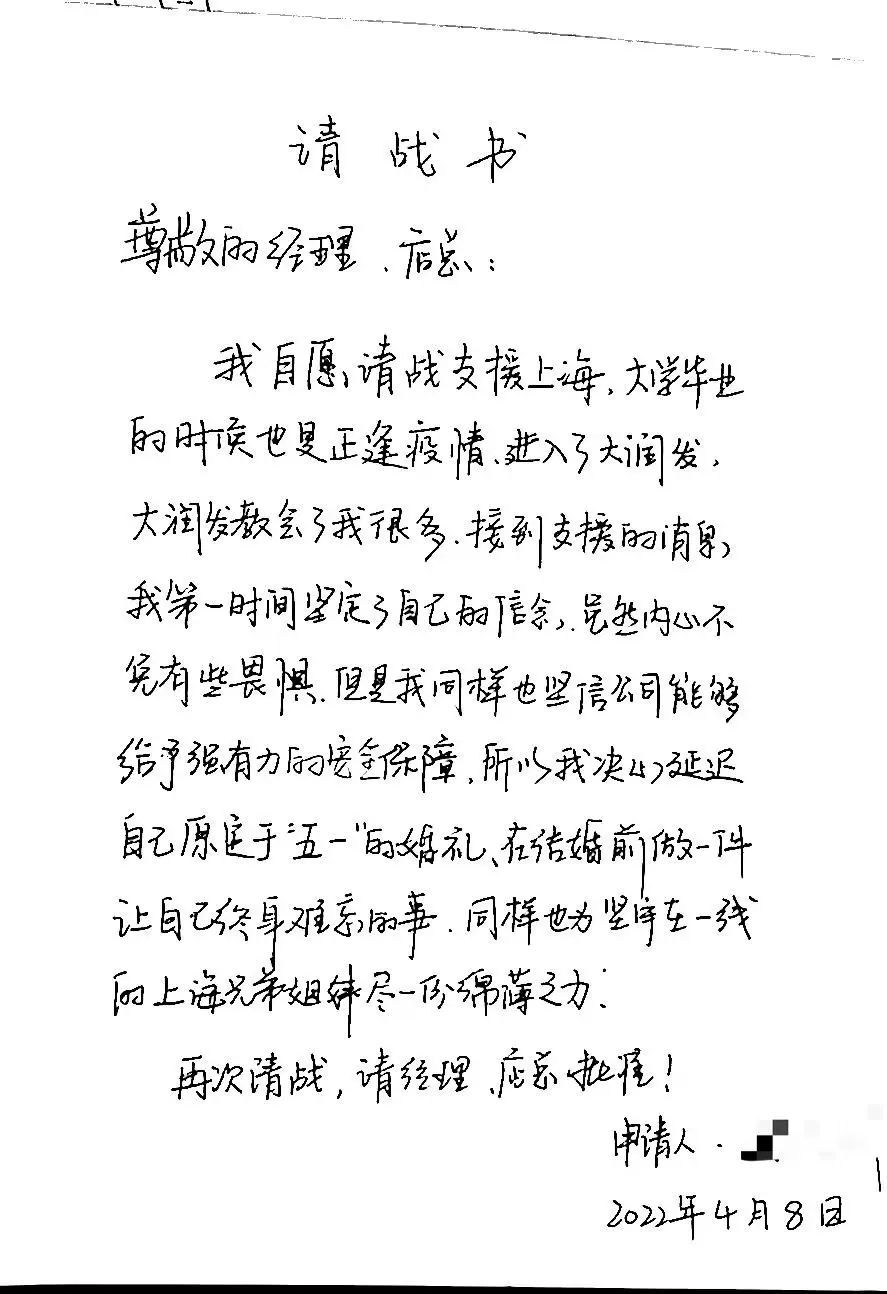 请战书
尊敬的经理、店总:
我自愿请战支援上海,大学毕业
的时候也是正逢疫情、进入了大润发,
大润发教会了我很多.接到支援的消息,
我第一时间坚定了自己的信念,虽然内心不
免有些畏惧.但是我同样也坚信公司能够
给予强有力的安全保障,所以我决心延迟
自己原定于“五一”的婚礼、在结婚前做一件
让自己终身难忘的事.同样也为坚守在一线
的上海兄弟姐妹尽一份绵薄之力!
再次请战,请经理、店总批准!
申请人.
2022年4月8日